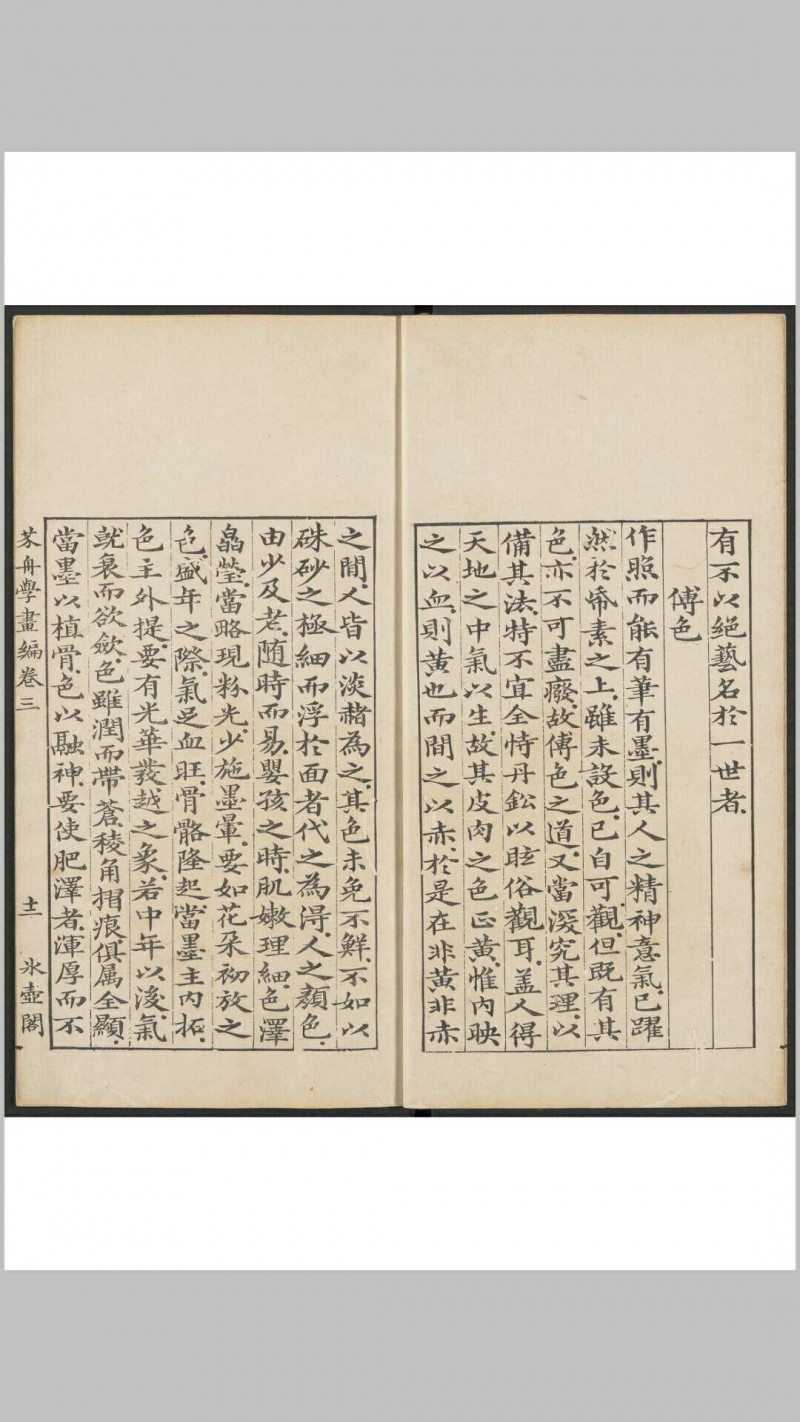 有不以絕藝名於一世者
傅色
作照而能有筆有墨則其人之精神意氣已躍
然於帋素之上雖未設色已自可觀但既有其
色亦不可盡廢故傅色之道又當深究其理以
備其法特不宜全恃丹鉛以眩俗觀耳盖人得
天地之中氣以生故其皮肉之色正黄惟內映
之以血則黄也而間之以赤於是在非黄非赤
之間人皆以淡赭為之其色未免不鮮不如以
硃砂之極細而浮於面者代之為得人之顏色
由少及老随時而易嬰孩之時肌嫩理細色澤
晶瑩當略現粉光少施墨暈要如花朶初放之
色盛年之際氣足血旺骨骼隆起當墨主內拓
色主外提要有光華發越之象若中年以後氣
就衰而欲歛色雖潤而帶蒼稜角摺痕俱属全顯
當墨以植骨色以融神要使肥澤者渾厚而不
芥舟學畫編卷三
十二
氷壺閣